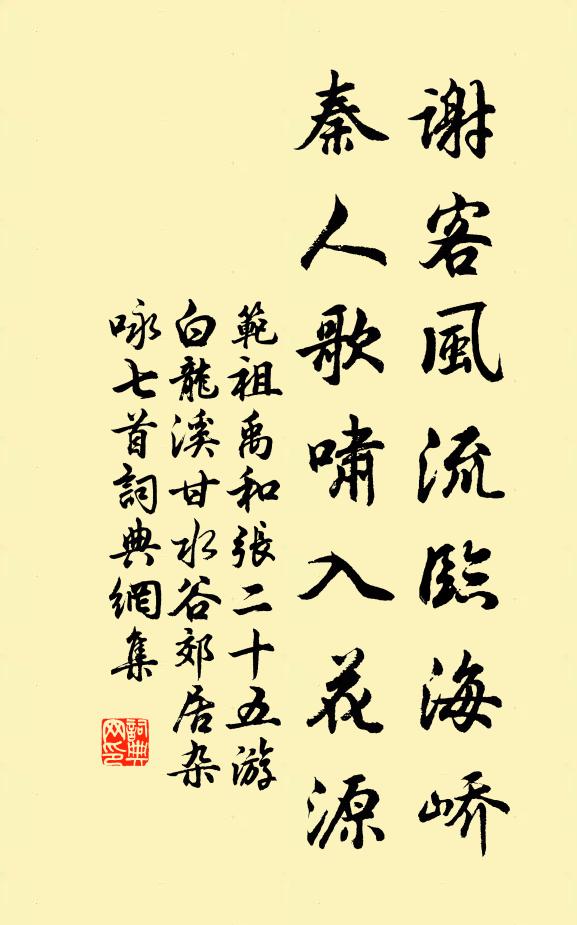 謝客風流臨海嶠
秦人歌嘯入花源
範祖禹和張二十五游
白龍溪甘水谷郊居杂
咏七首詞典網集
詞典網印